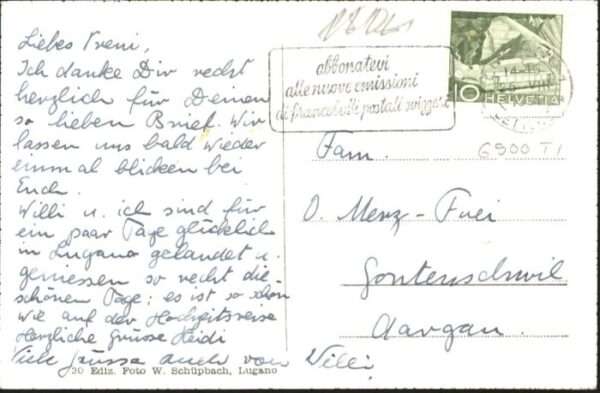 Liebes Vreni,
Ich danke Dir recht
herzlich für Deinen
so lieben Brief. Wir
lassen uns bald wieder
einmal blicken bei
Euch.
Willi u. ich sind für
ein paar Tage glücklich
in Lugano gelandet u.
geniessen so recht die
schönen Tage; es ist so schön
wie auf der Hochzeitsreise
Herzliche Grüsse Heidi
Viele Grüsse auch von Willi
20 Ediz. Foto W. Schüpbach, Lugano
abbonatevi
alle nuove emissioni
di francobolli postali svizzeri
10 HELVETIA
Fam.
6900 TI
O. Merz-Frei
Gontenschwil
Aargau.